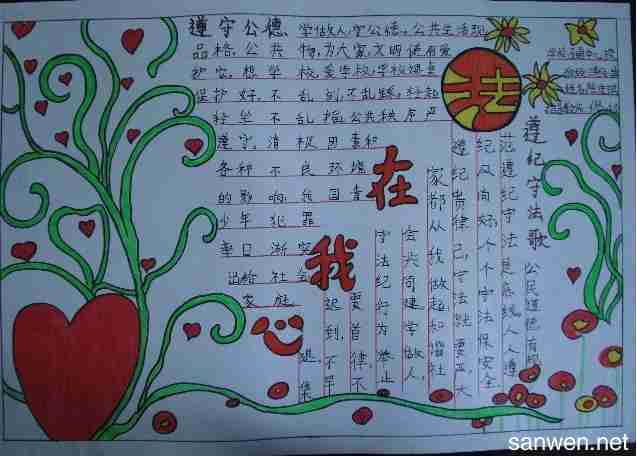 遵守公德 学做人,守公德,公共生活规
品格,公共 物,为大家,文明
护家,想学 校,爱学校,学校
保护好,不乱刻,不乱踩,轻起
轻坐不乱摇,公共秩序严
遵守,消极因素和
各种不良环境
的影响,我国青
少年犯罪
率日渐突
出给社会
家庭
法
在
我
心
遵纪守法歌
公民道德有规
范遵纪守法是底线人人遵
纪又尚好,个个守法保安全
遵纪贵律己,守法就要正,大
家都从我做起和谐社
会共同建学做人,
守法纪行为举止
要自律,不
迟到,不早
退,集
sanwen.net